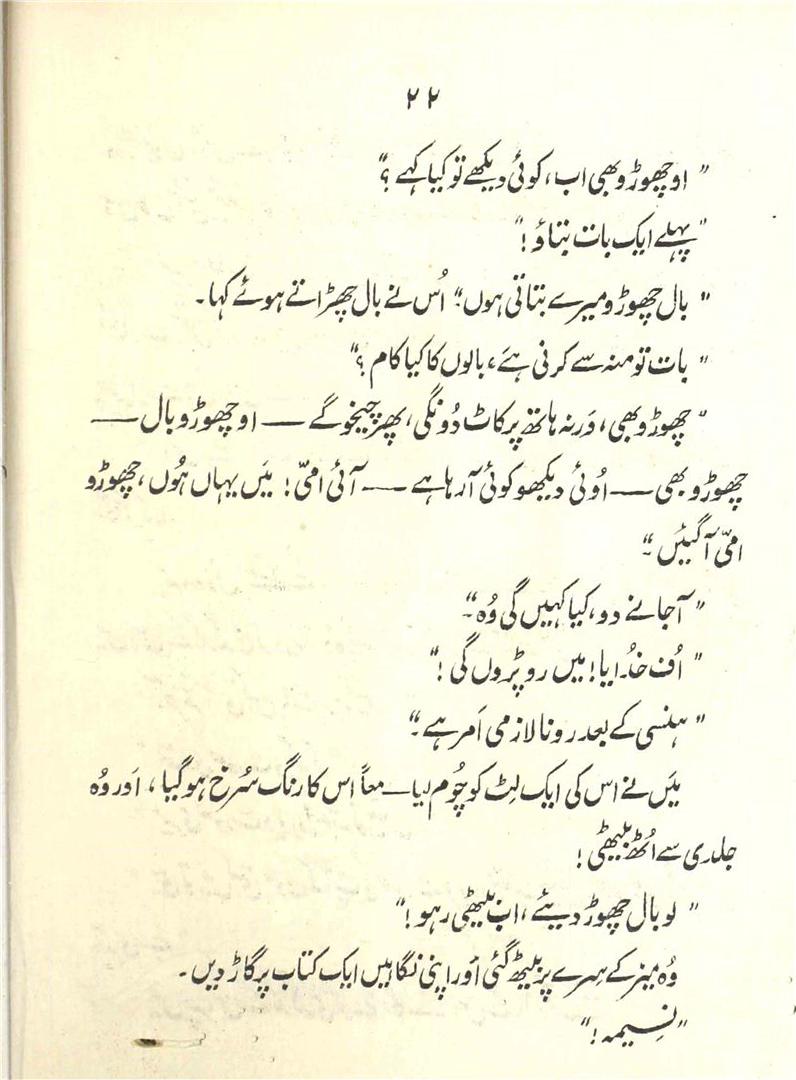 ۲۲
" او چھوڑو بھی اب، کوئی دیکھے تو کیا کہے ؟"
" پہلے ایک بات بتاؤ !"
" بال چھوڑو میرے بتاتی ہوں" اُس نے بال چھڑاتے ہوئے کہا۔
" بات تو منہ سے کرنی ہَے، بالوں کا کیا کام ؟"
" چھوڑو بھی، وَرنہ ہاتھ پر کاٹ دُونگی، پھر چیخو گے — او چھوڑو بال —
چھوڑو بھی — اُوئی دیکھو کوئی آ رہا ہے — آئی امّی! میَں یہاں ہُوں، چھوڑو
امّی آ گئیَں ۔"
" آجانے دو، کیا کہیں گی وُہ"۔
" اُف خُدایا! میں رو پڑوں گی !"
" ہنسی کے بعد رونا لازمی اَمر ہے ۔"
میَں نے اس کی ایک لِٹ کو چُوم لیا — معاً اس کا رنگ سُرخ ہو گیا، اَور وُہ
جلدی سے اُٹھ بیٹھی !
" لو بال چھوڑ دیئے، اب بیٹھی رہو !"
وُہ میز کے سِرے پر بیٹھ گئی اَور اپنی نگاہیں ایک کتاب پر گاڑ دیں۔
" نسِیمہ !"